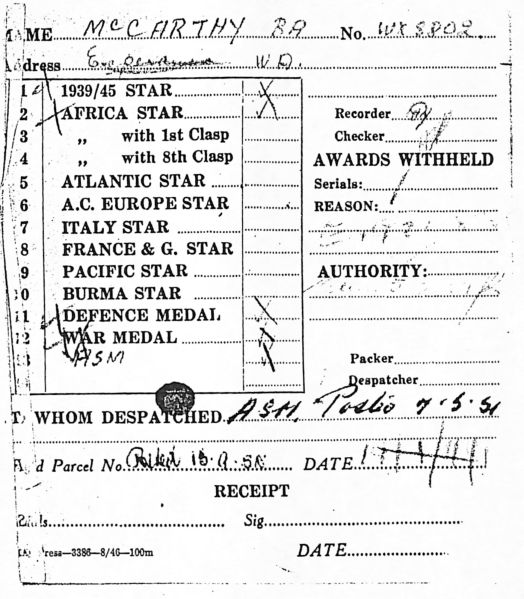 NAME McCARTHY BA No. WX 8802.
Address W.A.
1 1939/45 STAR X
2 AFRICA STAR X
3 „ with 1st Clasp
4 „ with 8th Clasp
5 ATLANTIC STAR
6 A.C. EUROPE STAR
7 ITALY STAR
8 FRANCE & G. STAR
9 PACIFIC STAR
10 BURMA STAR
11 DEFENCE MEDAL X
12 WAR MEDAL
13 ASM
Recorder
Checker
AWARDS WITHHELD
Serials:
REASON:
AUTHORITY:
Packer
Despatcher
WHOM DESPATCHED ASM. 7.5.51
Parcel No. DATE
RECEIPT
Sig.
—3386—8/46—100m DATE